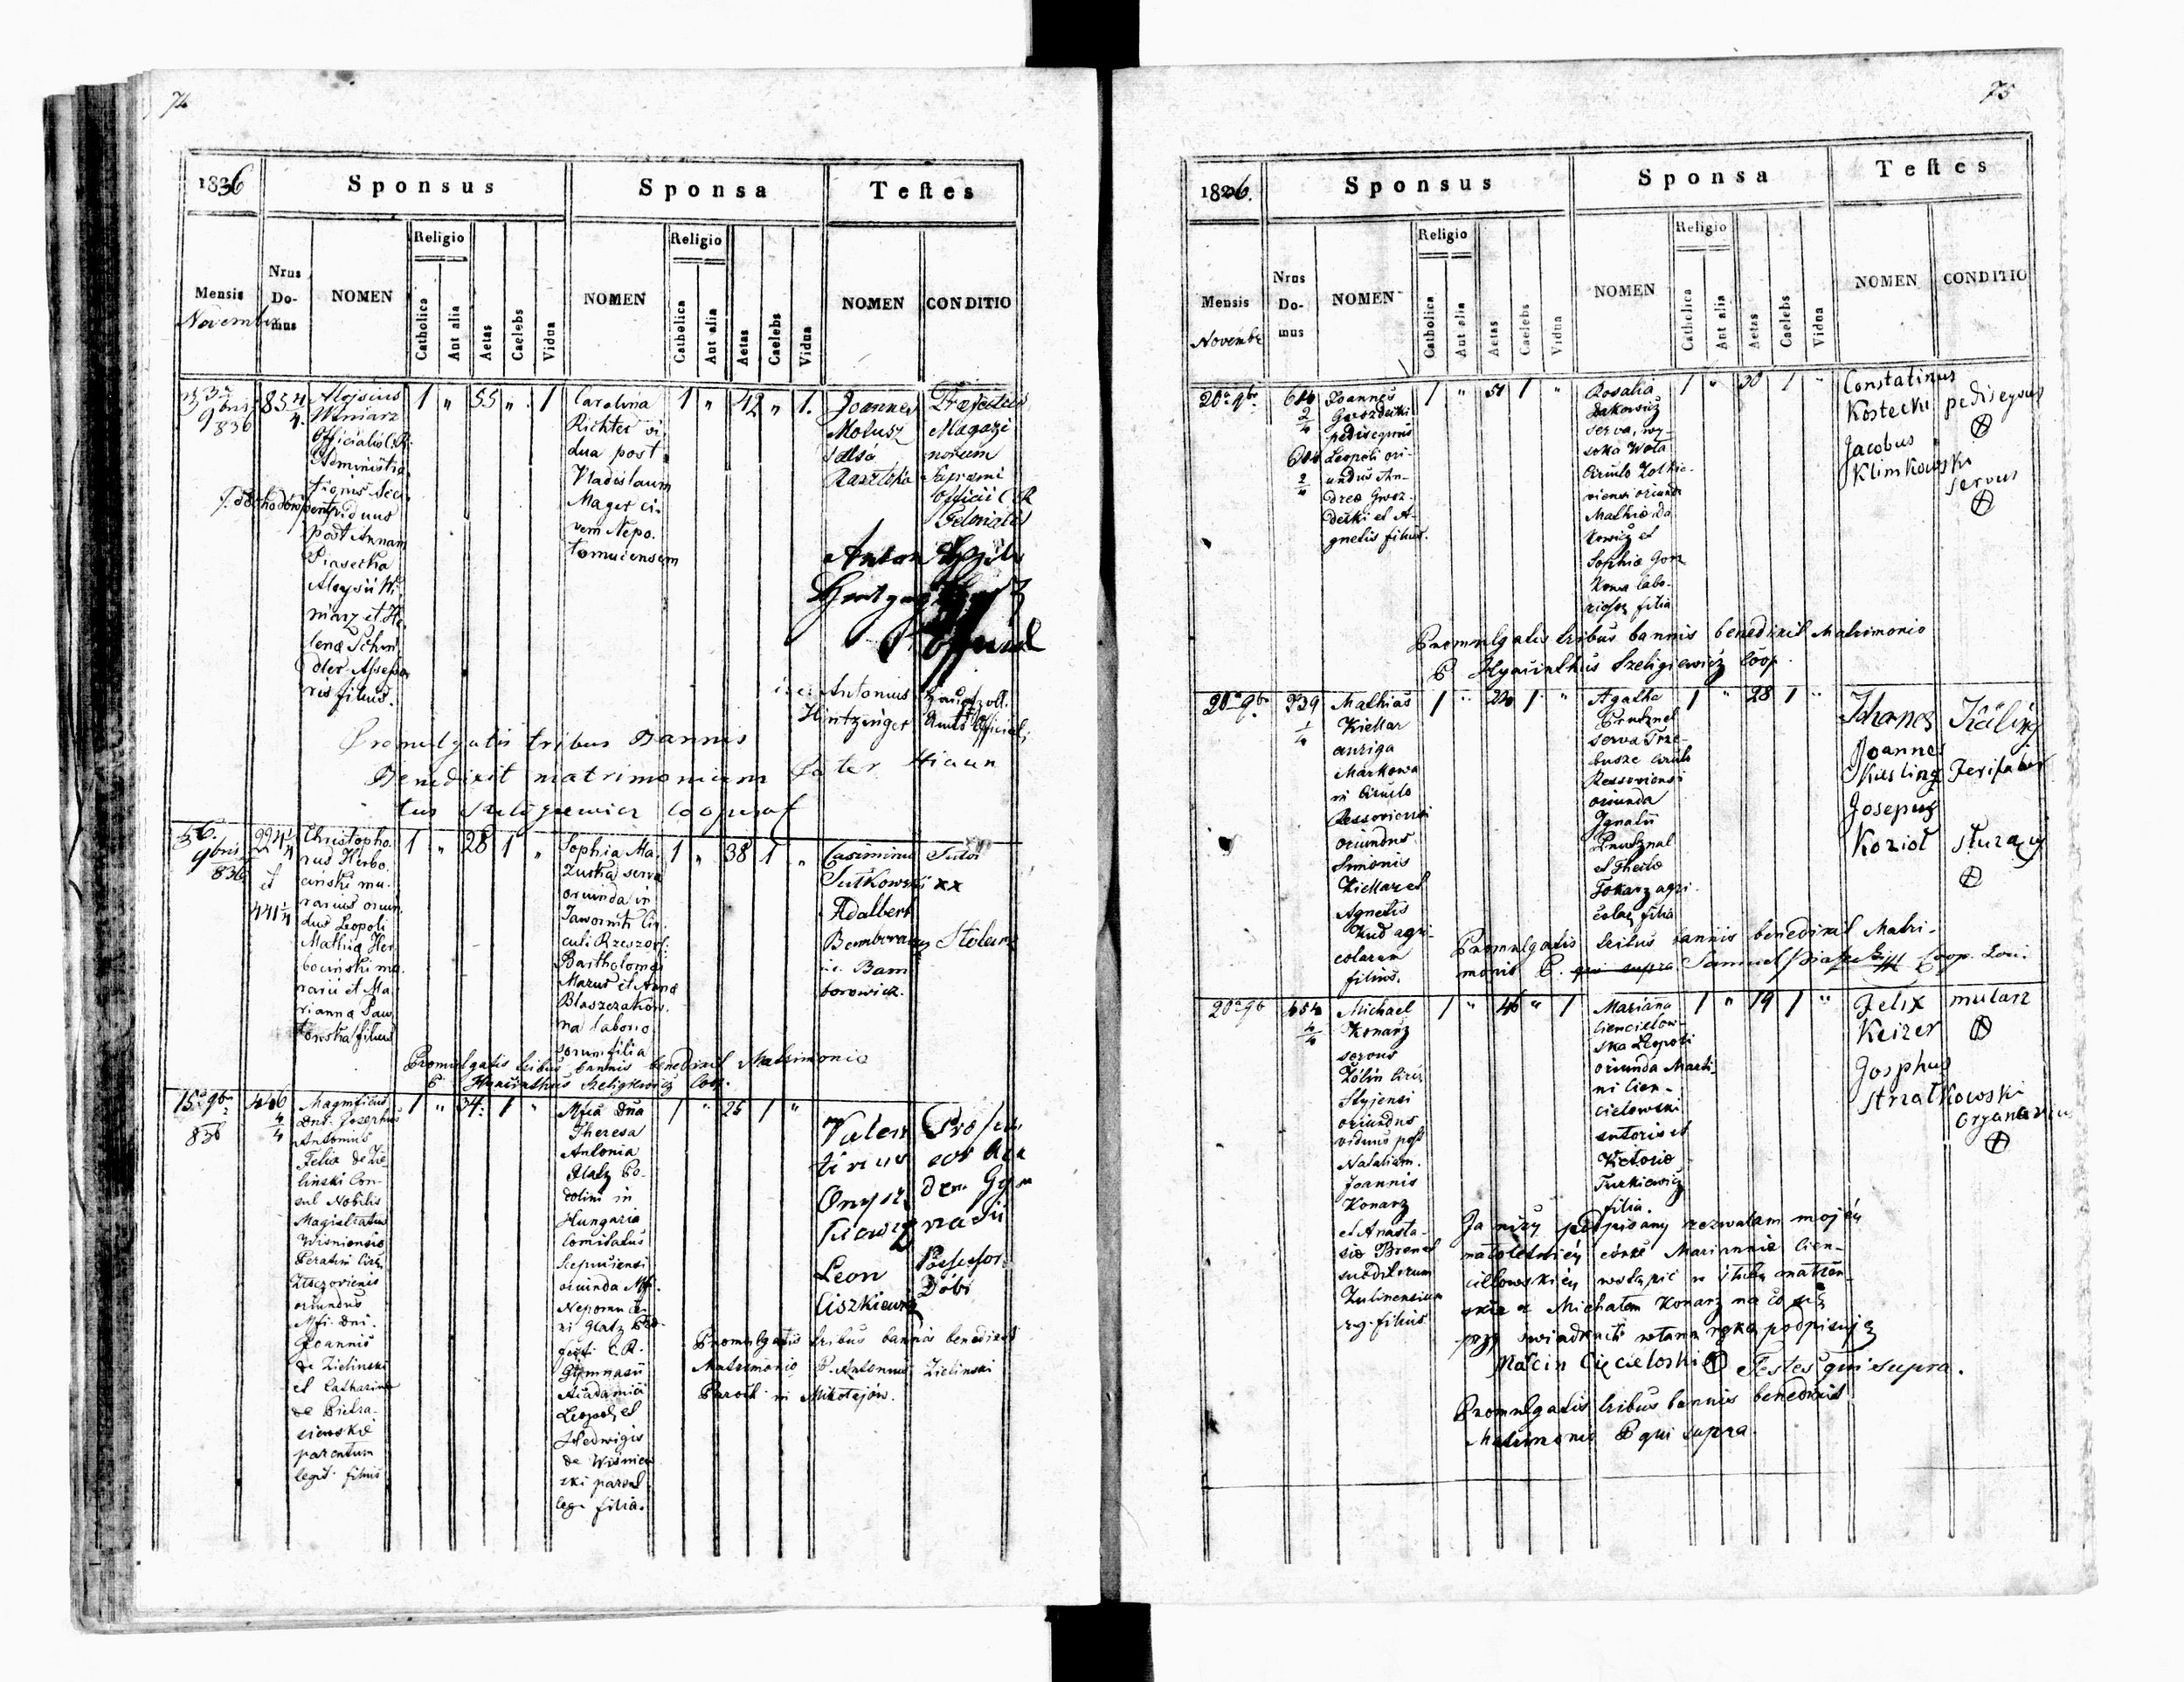 74
1836
Sponsus
Sponsa
Testes
Mensis
November
Nrus
Do-
mus
NOMEN
Religio
Catholica
Aut alia
Aetas
Caelebs
Vidua
NOMEN
Religio
Catholica
Aut alia
Aetas
Caelebs
Vidua
NOMEN
CONDITIO
3a
9bris
836
85 4/4.
Alojsius
Winiarz
Officialis C.R.
Administra
tionis
viduus
post Annam
Piasecka
Aloysii Wi
niarz et He
lena Schin
dler Assesso
ris filius.
1 " 55 " 1
Carolina
Richter vi
dua post
Vladislaum
Mager ci-
vem Nepo.
tomucensem
1 " 42 " 1.
Joannes
Motusz
Magazi
norum
Supremi
Officii C R
Anton
i.e. Antonius
Hintzinger
Hauptzoll.
Amts Official.
Promulgatis tribus Bannis
Benedixit matrimonium Pater Hiacin
tus Szeligiewicz Cooperat
6.
9bris
836
224 1/4
et
441 1/4
Christopho
rus Herbo.
ciński mu.
rarius oriun
dus Leopoli
Mathia Her
bociński mu
rarii et Ma
rianna Paw
łowska filius
1 " 28 1 "
Sophia Ma.
zurka serva
oriunda in
Jawornik Cir
culi Rzeszov:
Bartholomei
Mazur et Anna
Błaszczaków.
na laborio
sorum filia
1 " 38 1 "
Casimirus
Sutkowski xx
Adalbert
i.e. Bam
borowicz.
Stolarz
Promulgatis tribus bannis benedixit Matrimonio
P. Hyacinthus Szeligiewicz Coop.
15a 9bris
836
446
4/4
Magnificus
Dnus Josephus
Antonius
Felix de Zie
liński Con-
sul Nobilis
Magistratus
Wisniensis
oriundus
Mfi. Dni.
Joannis
de Zielinski
et Catharina
de Pietra-
siewskie
parentum
legit. filius
1 " 34. 1 "
Mfca Dna
Theresa
Antonia
Glatz Po-
dolini in
Hungaria
Comitatus
Scepusiensi
oriunda Mfi.
Nepomuce-
ni Glatz Prae-
fecti C.R.
Gymnasii
Academici
Leopol, et
Hedwigis
de Wisniew
ski parent
leg. filia.
1 " 25 1 "
Valen
tinus
Onysz
kiewicz
Profes
sor Aca
dem Gym
nasii
Leon
Ciszkiewicz
Possessor
Dóbr
Promulgatis tribus bannis benedixit
Matrimonio P. Antonius Zielinski
Paroch in Mikołajów.
75
1836.
Sponsus
Sponsa
Testes
Mensis
Novembr
Nrus
Do-
mus
NOMEN
Religio
Catholica
Aut alia
Aetas
Caelebs
Vidua
NOMEN
Religio
Catholica
Aut alia
Aetas
Caelebs
Vidua
NOMEN
CONDITIO
20a 9br.
604
2/4
604
2/4
Joannes
Gwozdecki
pedisequus
Leopoli ori-
undus An-
drea Gwoz-
decki et A-
gnetis filius.
1 " 51 1 "
Rosalia
Dakowicz
serva, wy-
soka Wola
Circulo Zolkie-
viensi oriunda
Mathia Da
kowicz et
Sophia Gor
kowa labo-
rios filia
1 " 30 1 "
Constatinus
Kostecki pedisequus
⊗
Jacobus
Klimkowski
servus
⊗
Promulgatis tribus bannis benedixit Matrimonio
P Hyacinthus Szeligiewicz Coop.
20a 9br.
239
1/4
Mathias
Kiellar
auriga
Markowa
in Circulo
Ressoviensi
oriundus
Simonis
Kiellar et
Agnetis
Kud agri-
colarum
filius.
1 " 24 1 "
Agatha
Prusznal
serva Trze-
busze Circulo
Ressoviensi
oriunda
Ignatii
Prusznal
et Thecla
Tokarz agri-
colar filia
1 " 28 1 "
Johanes Käsling
Joannes
Käsling
Josephus
Kozioł Sturaży
⊗
Promulgatis tribus bannis benedixit Matri-
monio P. qui supra Samuel Piasecki Coop. Loci.
20a 9b
454
4/4
Michael
Konarz
servus
Żólin Circ
Stryjensi
oriundus
viduus post
Nataliam.
Joannis
Konarz
et Anasta-
sia
subditorum
Zulinensium
r.g. filius
1 " 46 " 1
Marianna
Cienciełow-
ska Leopoli
oriunda Marti-
ni Cien-
cielowski
sutoris et
Victoria
Turkiewicz
filia.
1 " 19 1 "
Felix mularz
Keizer
⊗
Josphus
Strzałkowski
Organarius
⊗
Ja niżej podpisany zezwalam mojéy
małoletniéy córce Mariannie Cien-
ciełowskiéy wstąpić w śluby małżeń-
skie z Michałem Konarz na co się
przy świadkach własną ręką podpisuję
Marcin Cięcieloski ⊗ Testes qui supra.
Promulgatis tribus bannis benedixit
Matrimonio P qui supra.